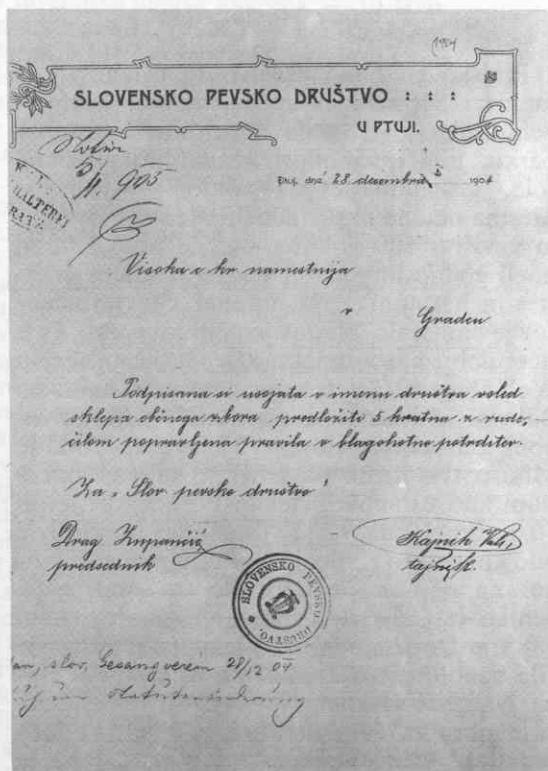 1904
SLOVENSKO PEVSKO DRUŠTVO : : :
U PTUJI.
5/1. 905
Ptuj, dné 28. decembra 1904
Visoka c kr namestnija
v Gradcu
Podpisana si usojata v imenu društva vsled
sklepa občnega zbora predložiti 5 kratna z rude,
čilom popravljena pravila v blagohotno potrditev.
Za "Slov. pevsko društvo"
Drag Zupančič Kajnih
predsednik tajnik.
SLOVENSKO PEVSKO DRUŠTVO.
slov. Gesangverein 28/12 04
um Statutenänderung